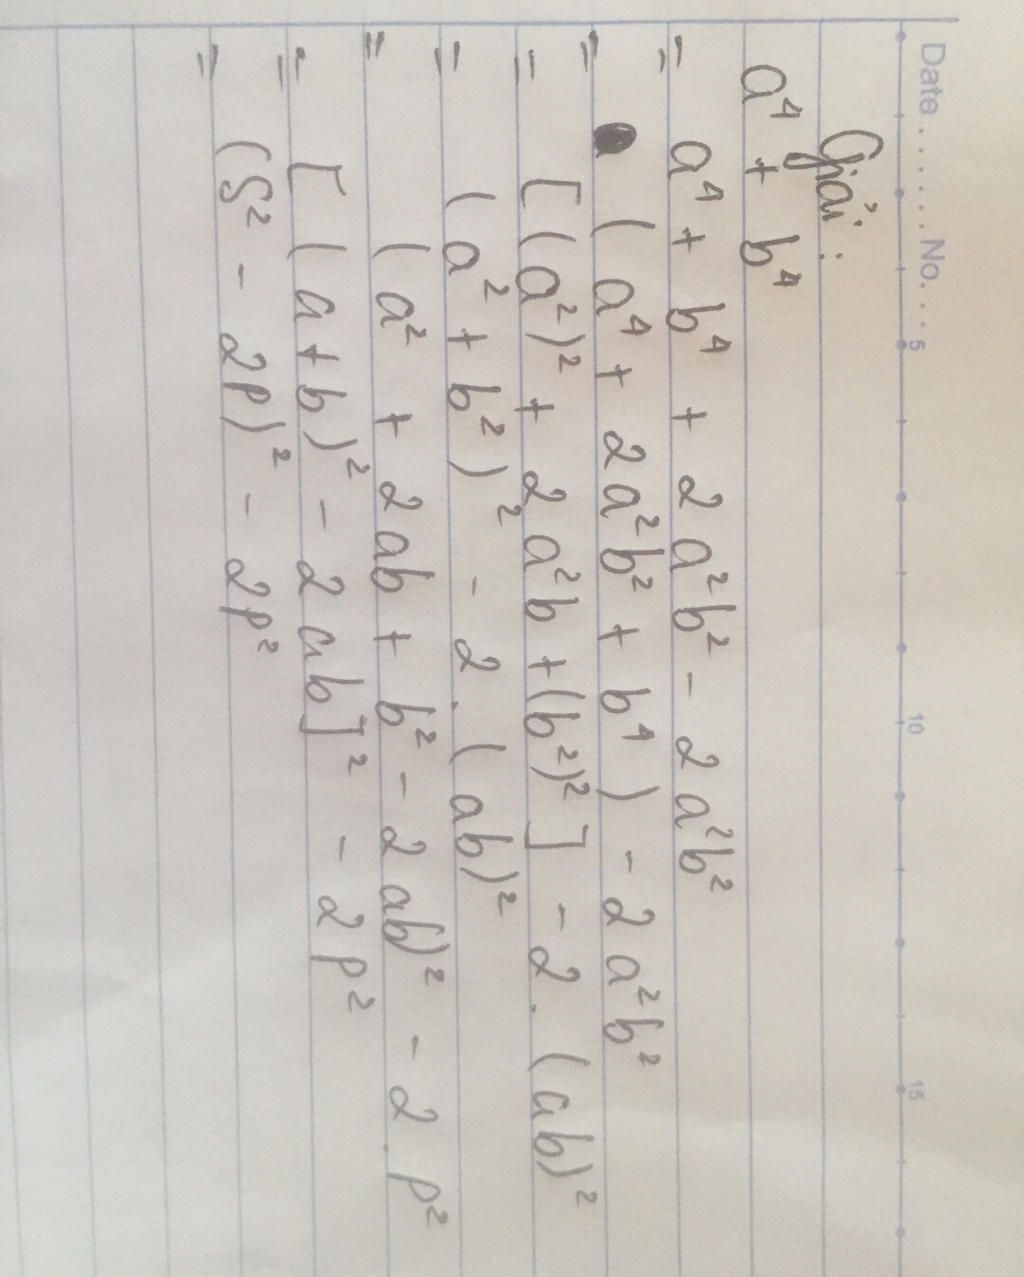 Date . . . . . . . No. . . .
5 10 15
Giải:
a⁴ + b⁴
= a⁴ + b⁴ + 2a²b² - 2a²b²
= (a⁴ + 2a²b² + b⁴) - 2a²b²
= [(a²)² + 2a²b + (b²)²] - 2.(ab)²
= (a² + b²)² - 2.(ab)²
= (a² + 2ab + b² - 2ab)² - 2.P²
= [(a+b)² - 2ab]² - 2P²
= (S² - 2P)² - 2P²